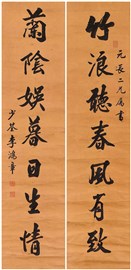 元長二兄属書
竹浪聽春風有致
蘭陰娛暮日生情
少荃李鴻章